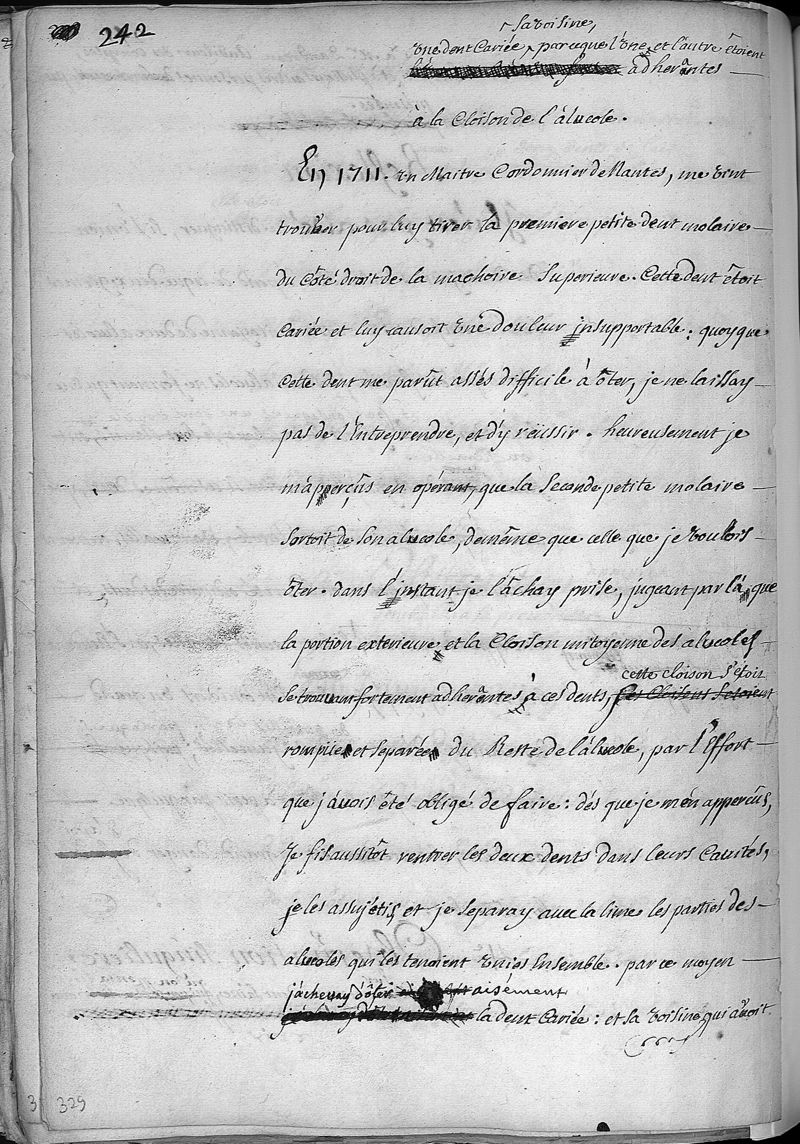 242
sa voisine,
une dent Cariée, parceque l'une et l'autre êtoient
adherântes
à la Cloison de l'âlucole.
En 1711. un Maitre Cordonnier de Nantes, me vint
trouver pour luy tirer la premiere petite dent molaire
du Côté droit de la machoire Superieure. Cette dent êtoit
Cariée et luy causoit une douleur jnsupportable: quoyque
Cette dent me parût assés difficile à ôter, je ne laissay
pas de l'Entreprendre, et d'y réüssir. heureusement je
m'apperçus en opérant, que la Seconde petite molaire
Sortoit de Son alucole, demême que celle que je voulois
ôter. dans l'jnstant je l'âchay prise, jugeant par là, que
la portion exterieure et la Cloison mitoyenne des alucoles
cette cloison s'étoit
Se trouvant fortement adherântes à ces dents, ses Cloisons s'etoient
rompüe et Separée du Reste de l'âlucole, par l'Effort
que j'âvois êté obligé de faire: dés que je m'en apperçûs,
Je fis aussitôt rentrer les deux dents dans leurs Cavités,
je les assujétis, et je Separay avec la lime les parties des
alucoles qui les tenoient unies Ensemble. par ce moyen
j'achevay d'ôter aisément
la dent Cariée: et sa voisine, qui âvoit
3 329